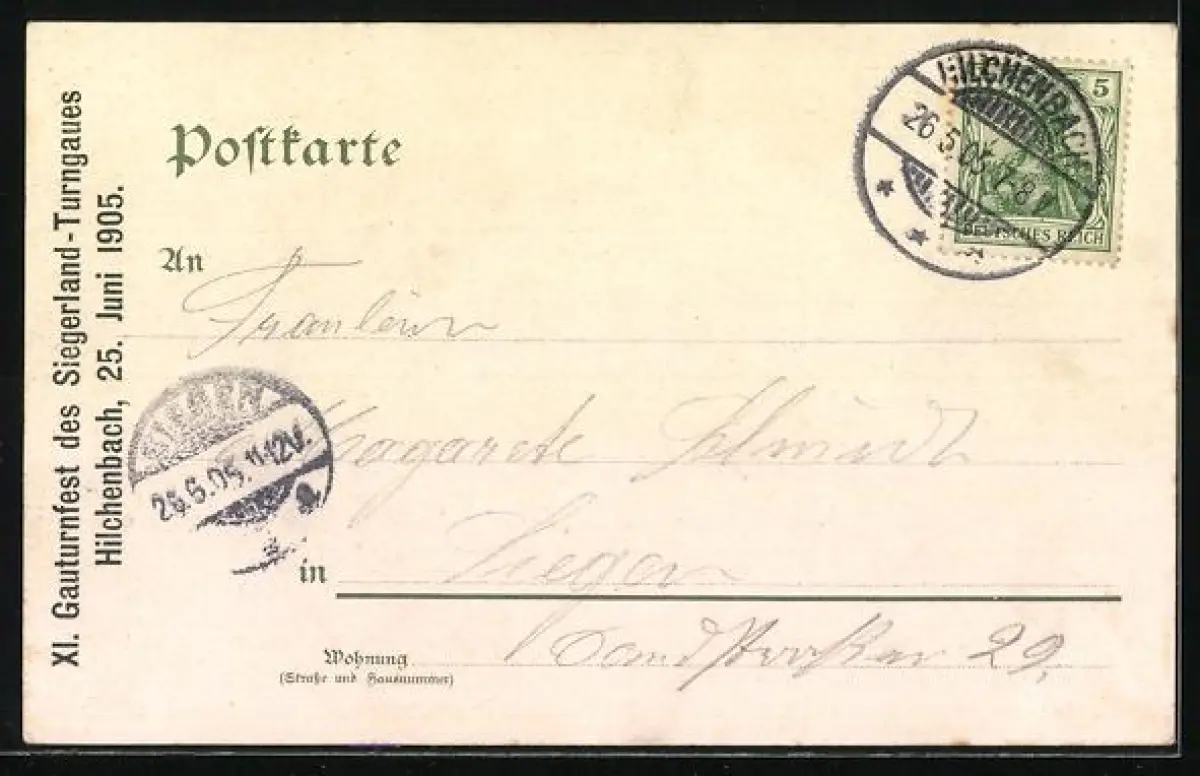 XI. Gauturnfest des Siegerland-Turngaues
Hilchenbach, 25. Juni 1905.
Postkarte
HILCHENBACH
5
DEUTSCHES REICH
An
Fräulein
SIEGEN
26.6.05. 11-12V.
in
Siegen
Wohnung
(Straße und Hausnummer)
Sandstraße 29.